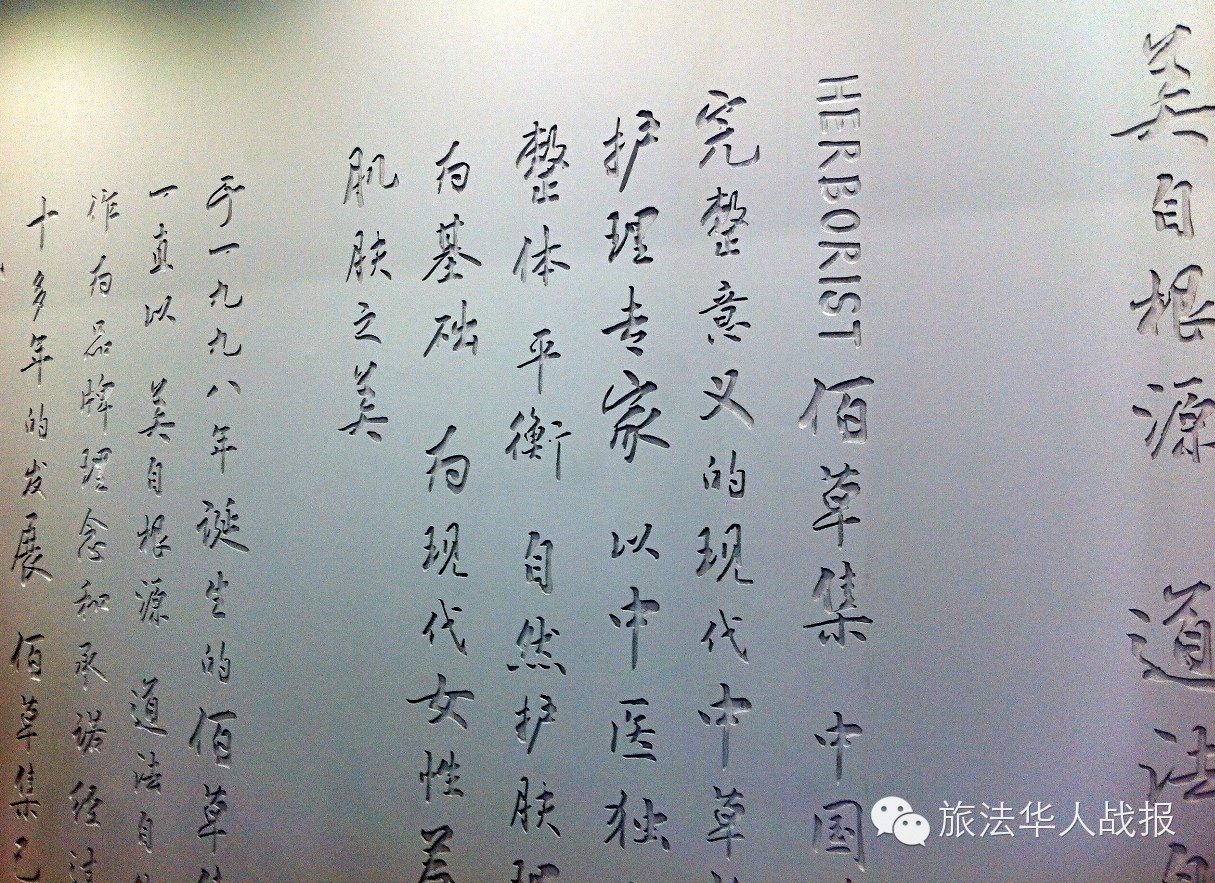 美自根源 道法自
HERBORIST 佰草集 中国
完整意义的现代中草
护理专家 以中医独
整体 平衡 自然护肤理
为基础 为现代女性
肌肤之美
于一九九八年诞生的佰草
一直以 美自根源 道法自
作为品牌理念和承诺经过
十多年的发展 佰草集已
旅法华人战报